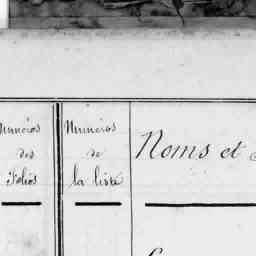 Numéros
des
folios
Numéros
de
la liste
Noms et